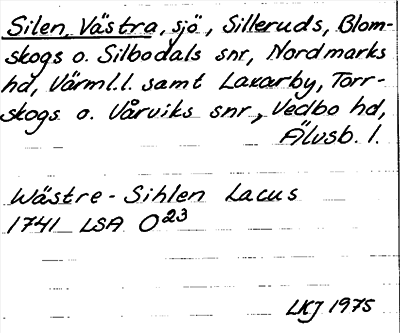 Silen, Västra, sjö, Silleruds, Blom-
skogs o. Silbodals snr, Nordmarks
hd, Värml.l. samt Laxarby, Torr-
skogs o. Vårviks snr, Vedbo hd,
Älvsb. l.
Wästre-Sihlen Lacus
1741 LSA O23
LKJ 1975